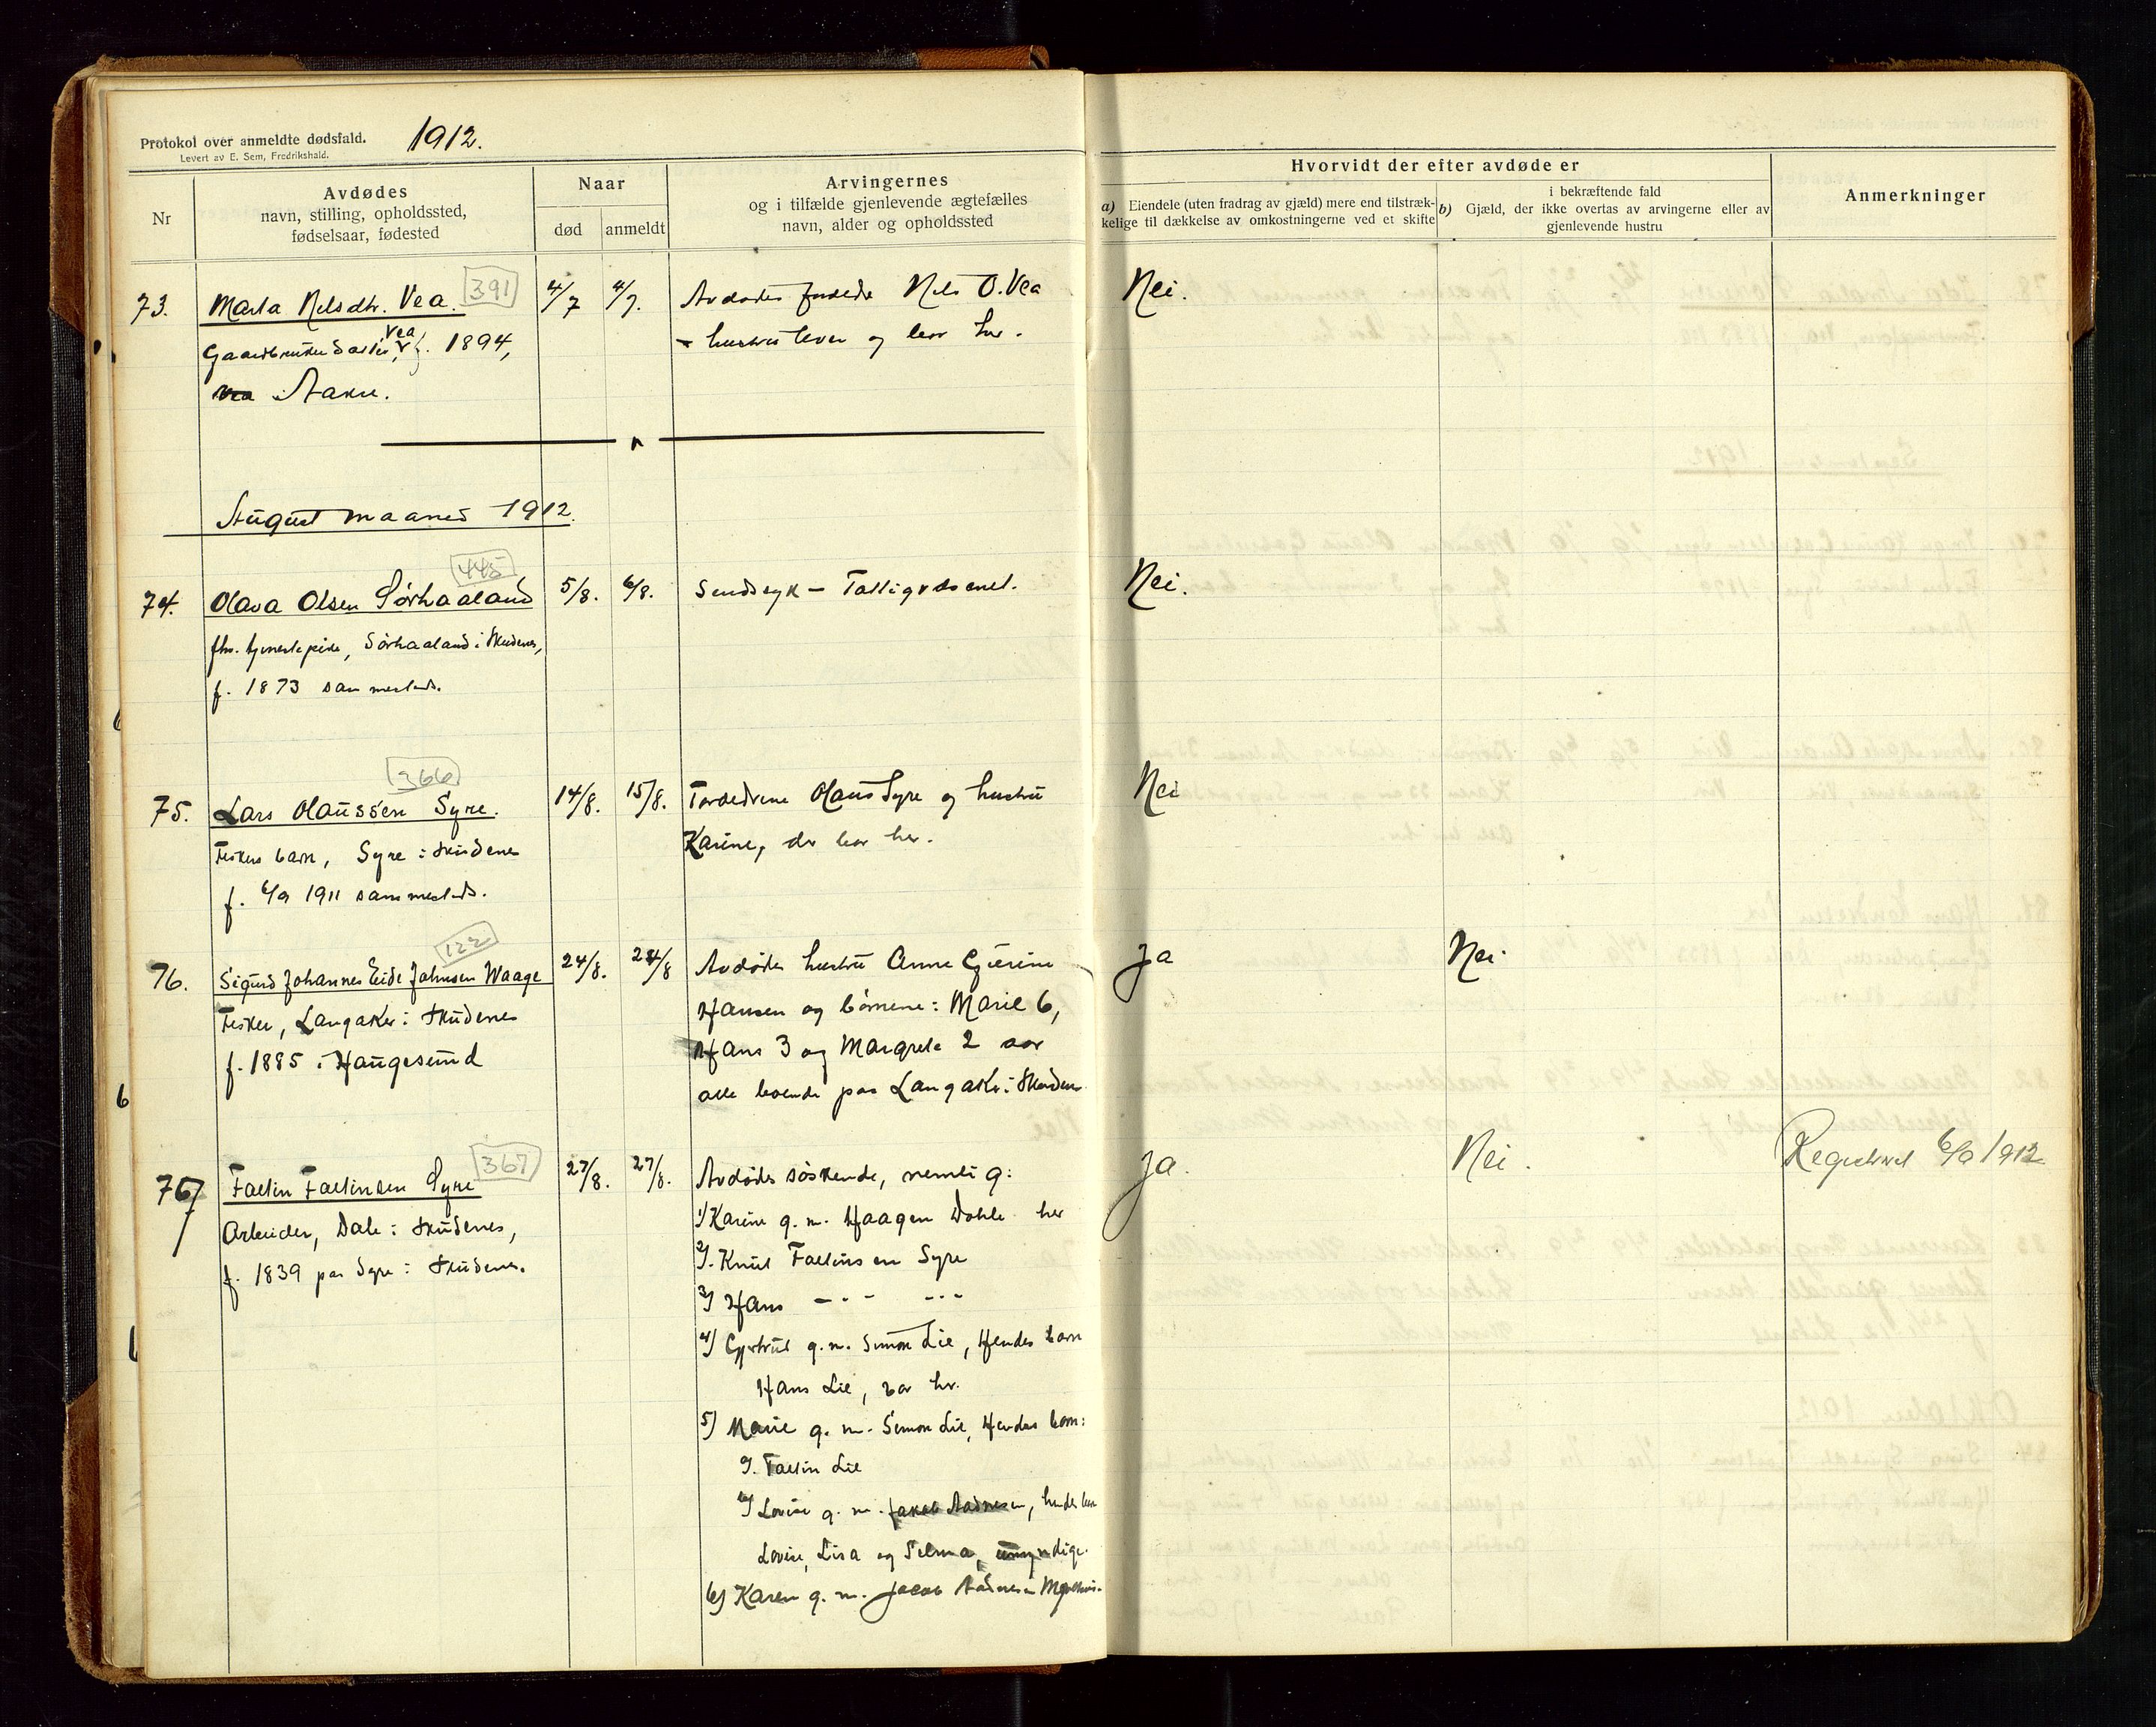 Protokol over anmeldte dødsfald. 1912.
Levert av E. Sem, Fredrikshald.
Nr
Avdødes
navn, stilling, opholdssted,
fødselsaar, fødested
Naar
død
anmeldt
Arvingernes
og i tilfælde gjenlevende ægtefælles
navn, alder og opholdssted
Hvorvidt der efter avdøde er
a) Eiendele (uten fradrag av gjæld) mere end tilstræk-
kelige til dækkelse av omkostningerne ved et skifte
i bekræftende fald
b) Gjæld, der ikke overtas av arvingerne eller av
gjenlevende hustru
Anmerkninger
391
73. Marta Nelsdtr. Vea. 4/7 4/7. Avdødes Nels O. Vea Nei.
Vea
f. 1894, hustru lever og bor her.
Vea Aakre.
August maaned 1912.
445
74. Olava Olsen Sørhaaland 5/8. 6/8. Sindssyk – Nei.
fhv. tjenestepike, Sørhaaland i Skudenes,
f. 1873 sammesteds.
366
75. Lars Olaussen Syre. 14/8. 15/8. Forældrene Olaus Syre og hustru Nei
Fiskers barn, Syre i Skudenes Karine, der bor her.
f. 6/9 1911 sammesteds.
122
76. Sigurd Johannes Eide Johnsen Waage 24/8. 24/8 Avdødes hustru Anne Gjerine Ja Nei.
Fisker, Langaker i Skudenes Hansen og børnene: Marie 6,
f. 1885 i Haugesund Hans 3 og Margrete 2 aar
alle boende paa Langaker i Skudenes
367
77 Faltin Faltinsen Syre 27/8. 27/8. Avdødes søskende, nemlig: Ja. Nei. Registreret 6/9 1912
Arbeider, Dale i Skudenes, 1) Karine g. m. Haagen Dahle her
f. 1839 paa Syre i Skudenes. 2). Knut Faltinsen Syre
3) Hans – " – – " –
4) Gjertrud g. m. Simon Lie, Hendes barn
Hans Lie, bor her.
5) Marie g. m. Simon Lie, Hendes barn:
Faltin Lie
6) Lovise g. m. Jakob Aadnesen, hendes barn
Lovise, Lisa og Selma, umyndige.
6) Karen g. m. Jacob Aadnesen